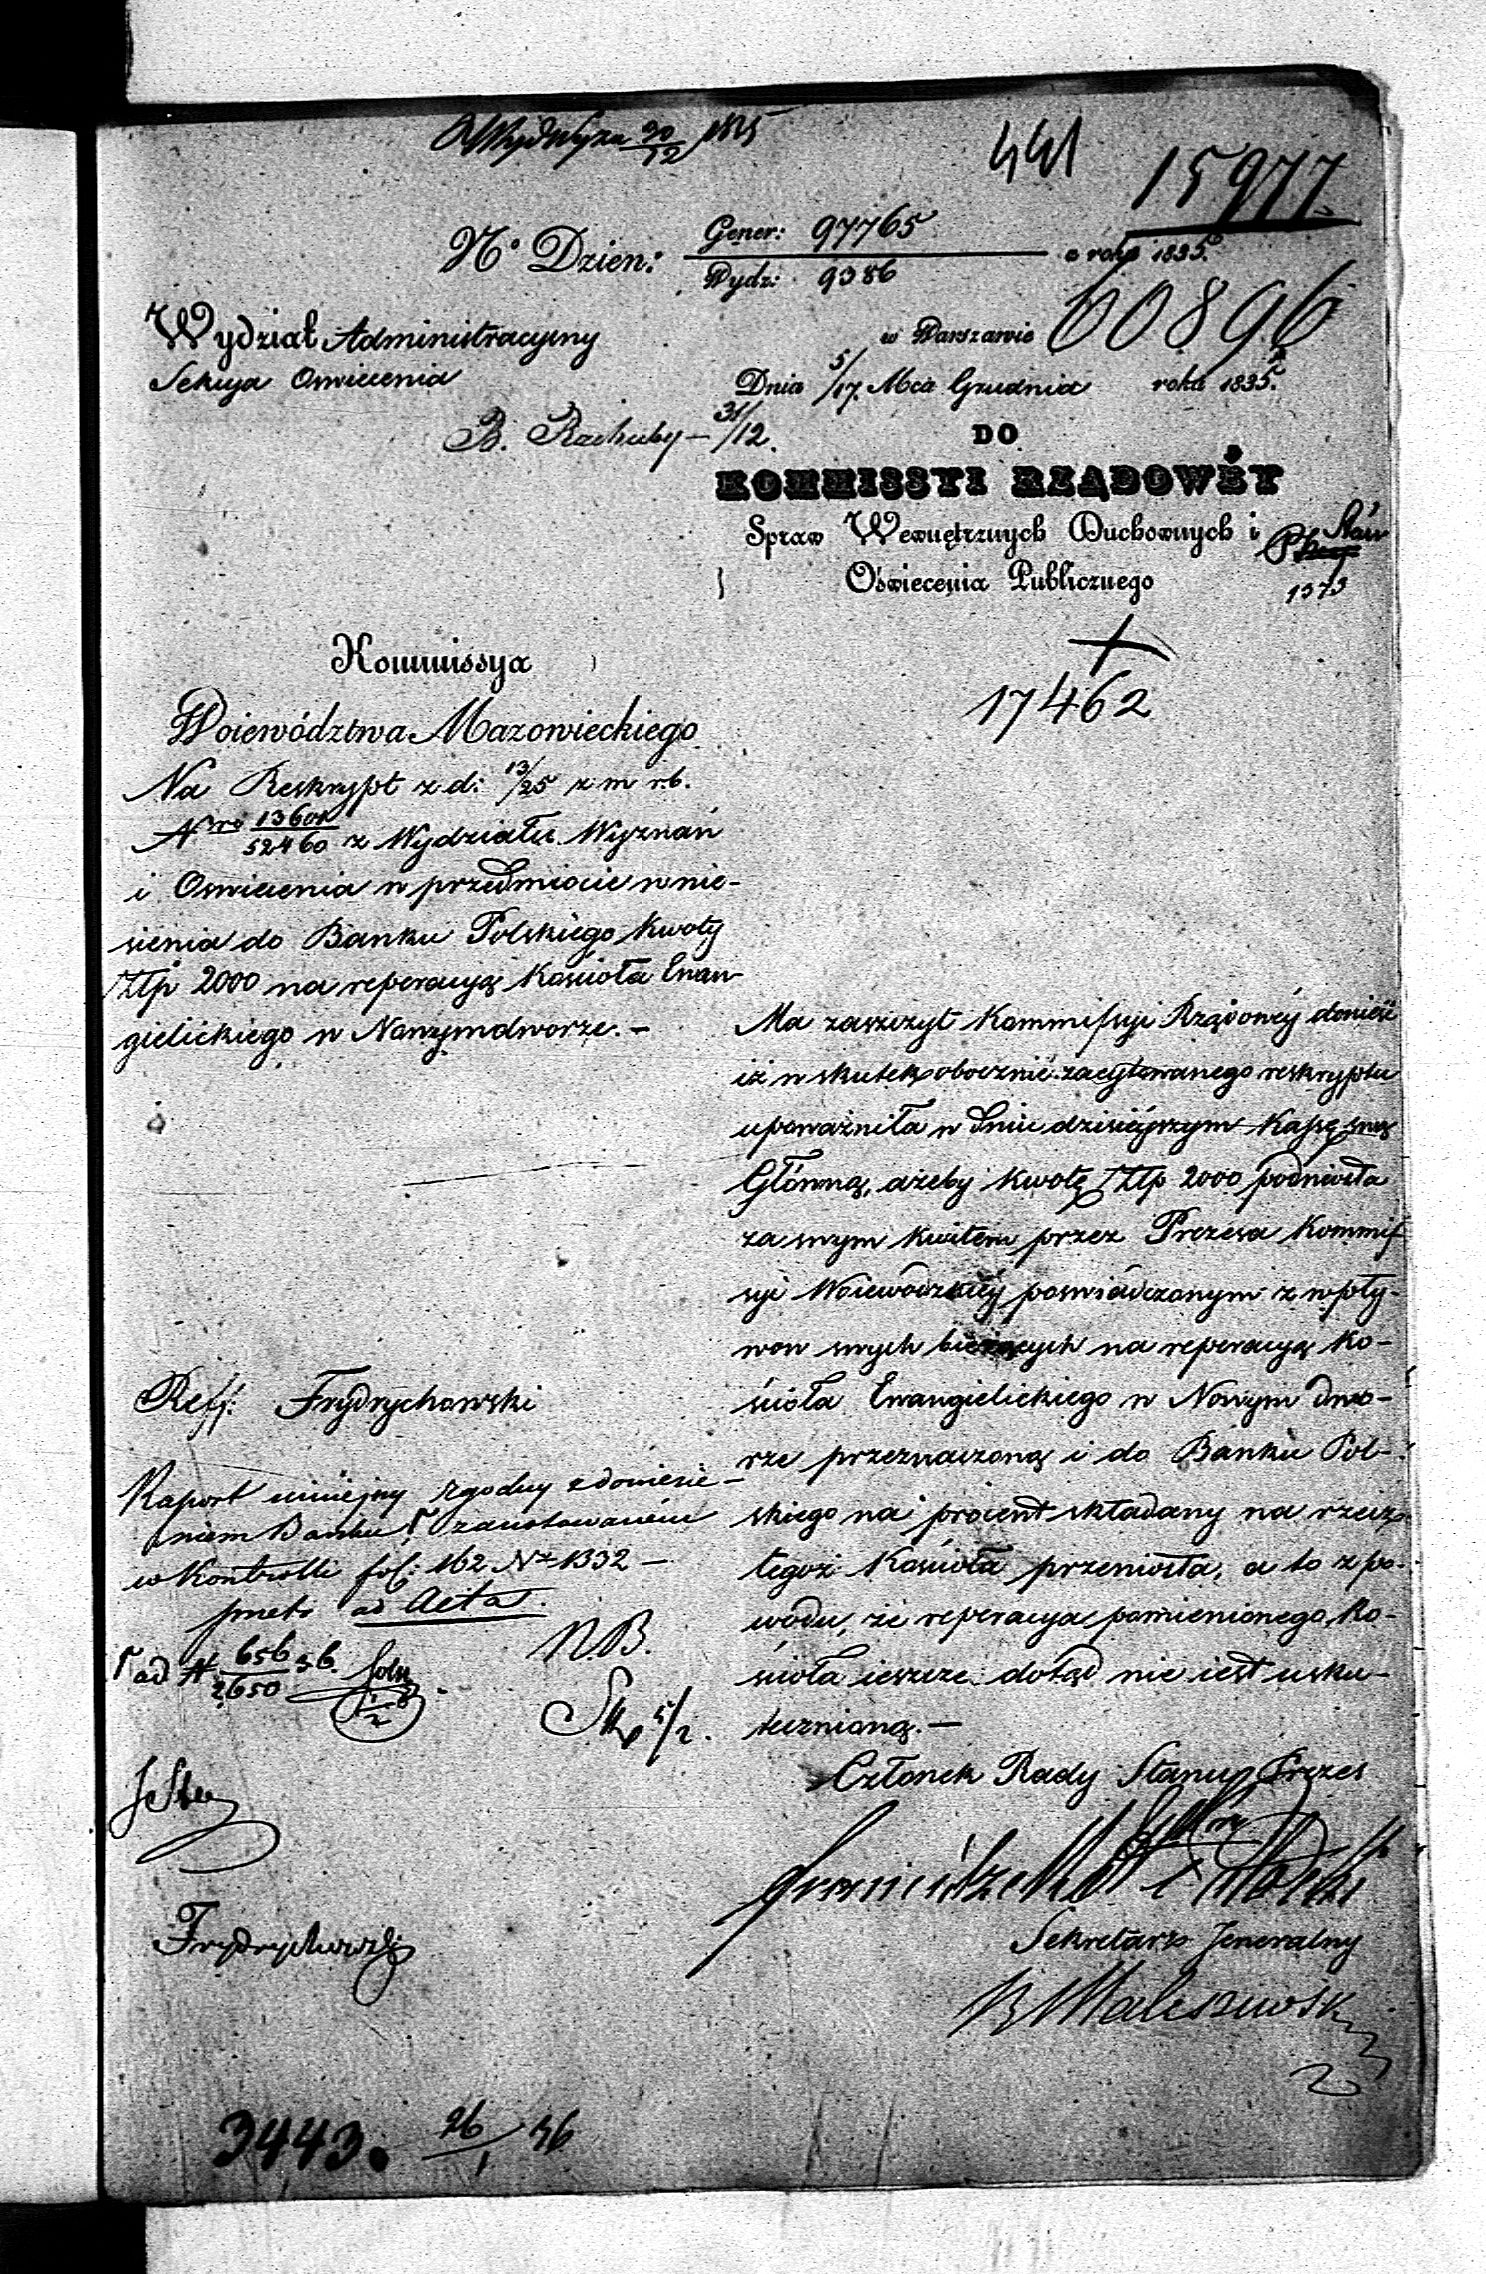 441
15977.
N° Dzien: Gener: 97765 / Wydz: 9386 o roku 1835.
60896
Wydział Administracyjny
Sekcya Oswiecenia
w Warszawie
Dnia 5/17. Mca Grudnia roku 1835.
B. Rachuby – 31/12.
DO
KOMMISSYI RZĄDOWÉY
Spraw Wewnętrznych Duchownych i
Oświecenia Publicznego
1373
Kommissya
Województwa Mazowieckiego
17462
Na Reskrypt z d: 13/25 z m r.b.
Nro 13601/52460 z Wydziału Wyznań
i Oswiecenia w przedmiocie wnie-
sienia do Banku Polskiego kwoty
Złp 2000 na reperacyą Kościoła Ewan-
gielickiego w Nowymdworze. –
Ma zaszczyt Kommissyi Rządowéy donieść
iż w skutek obocznie zacytowanego reskryptu
upoważniła w dniu dzisiéjszym Kassę swą
Główną, ażeby kwotę Złp 2000 podniosła
za swym kwitem przez Prezesa Kommis
syi Woiewódzkiéy poswiadczonym z wpły-
wow swych bieżących na reperacyą Ko-
ścioła Ewangielickiego w Nowym dwo-
rze przeznaczoną i do Banku Pol-
skiego na procent składany na rzecz
tegoż Kościoła przeniosła, a to z po-
wodu, że reperacya pomienionego Ko-
ścioła ieszcze dotąd nie iest usku-
teczniona. –
Reff: Frydrychowski
Raport niniejszy zgodny z doniesie-
niem Banku zanotowaném
w Kontrolli fol: 162 Nr 1332 –
ad Acta.
ad N 656/2650 36.
N.B.
5/2.
Członek Rady Stanu Prezes
Frydrychowski
Sekretarz Jeneralny
Maleszewski
3443. 26/1 36